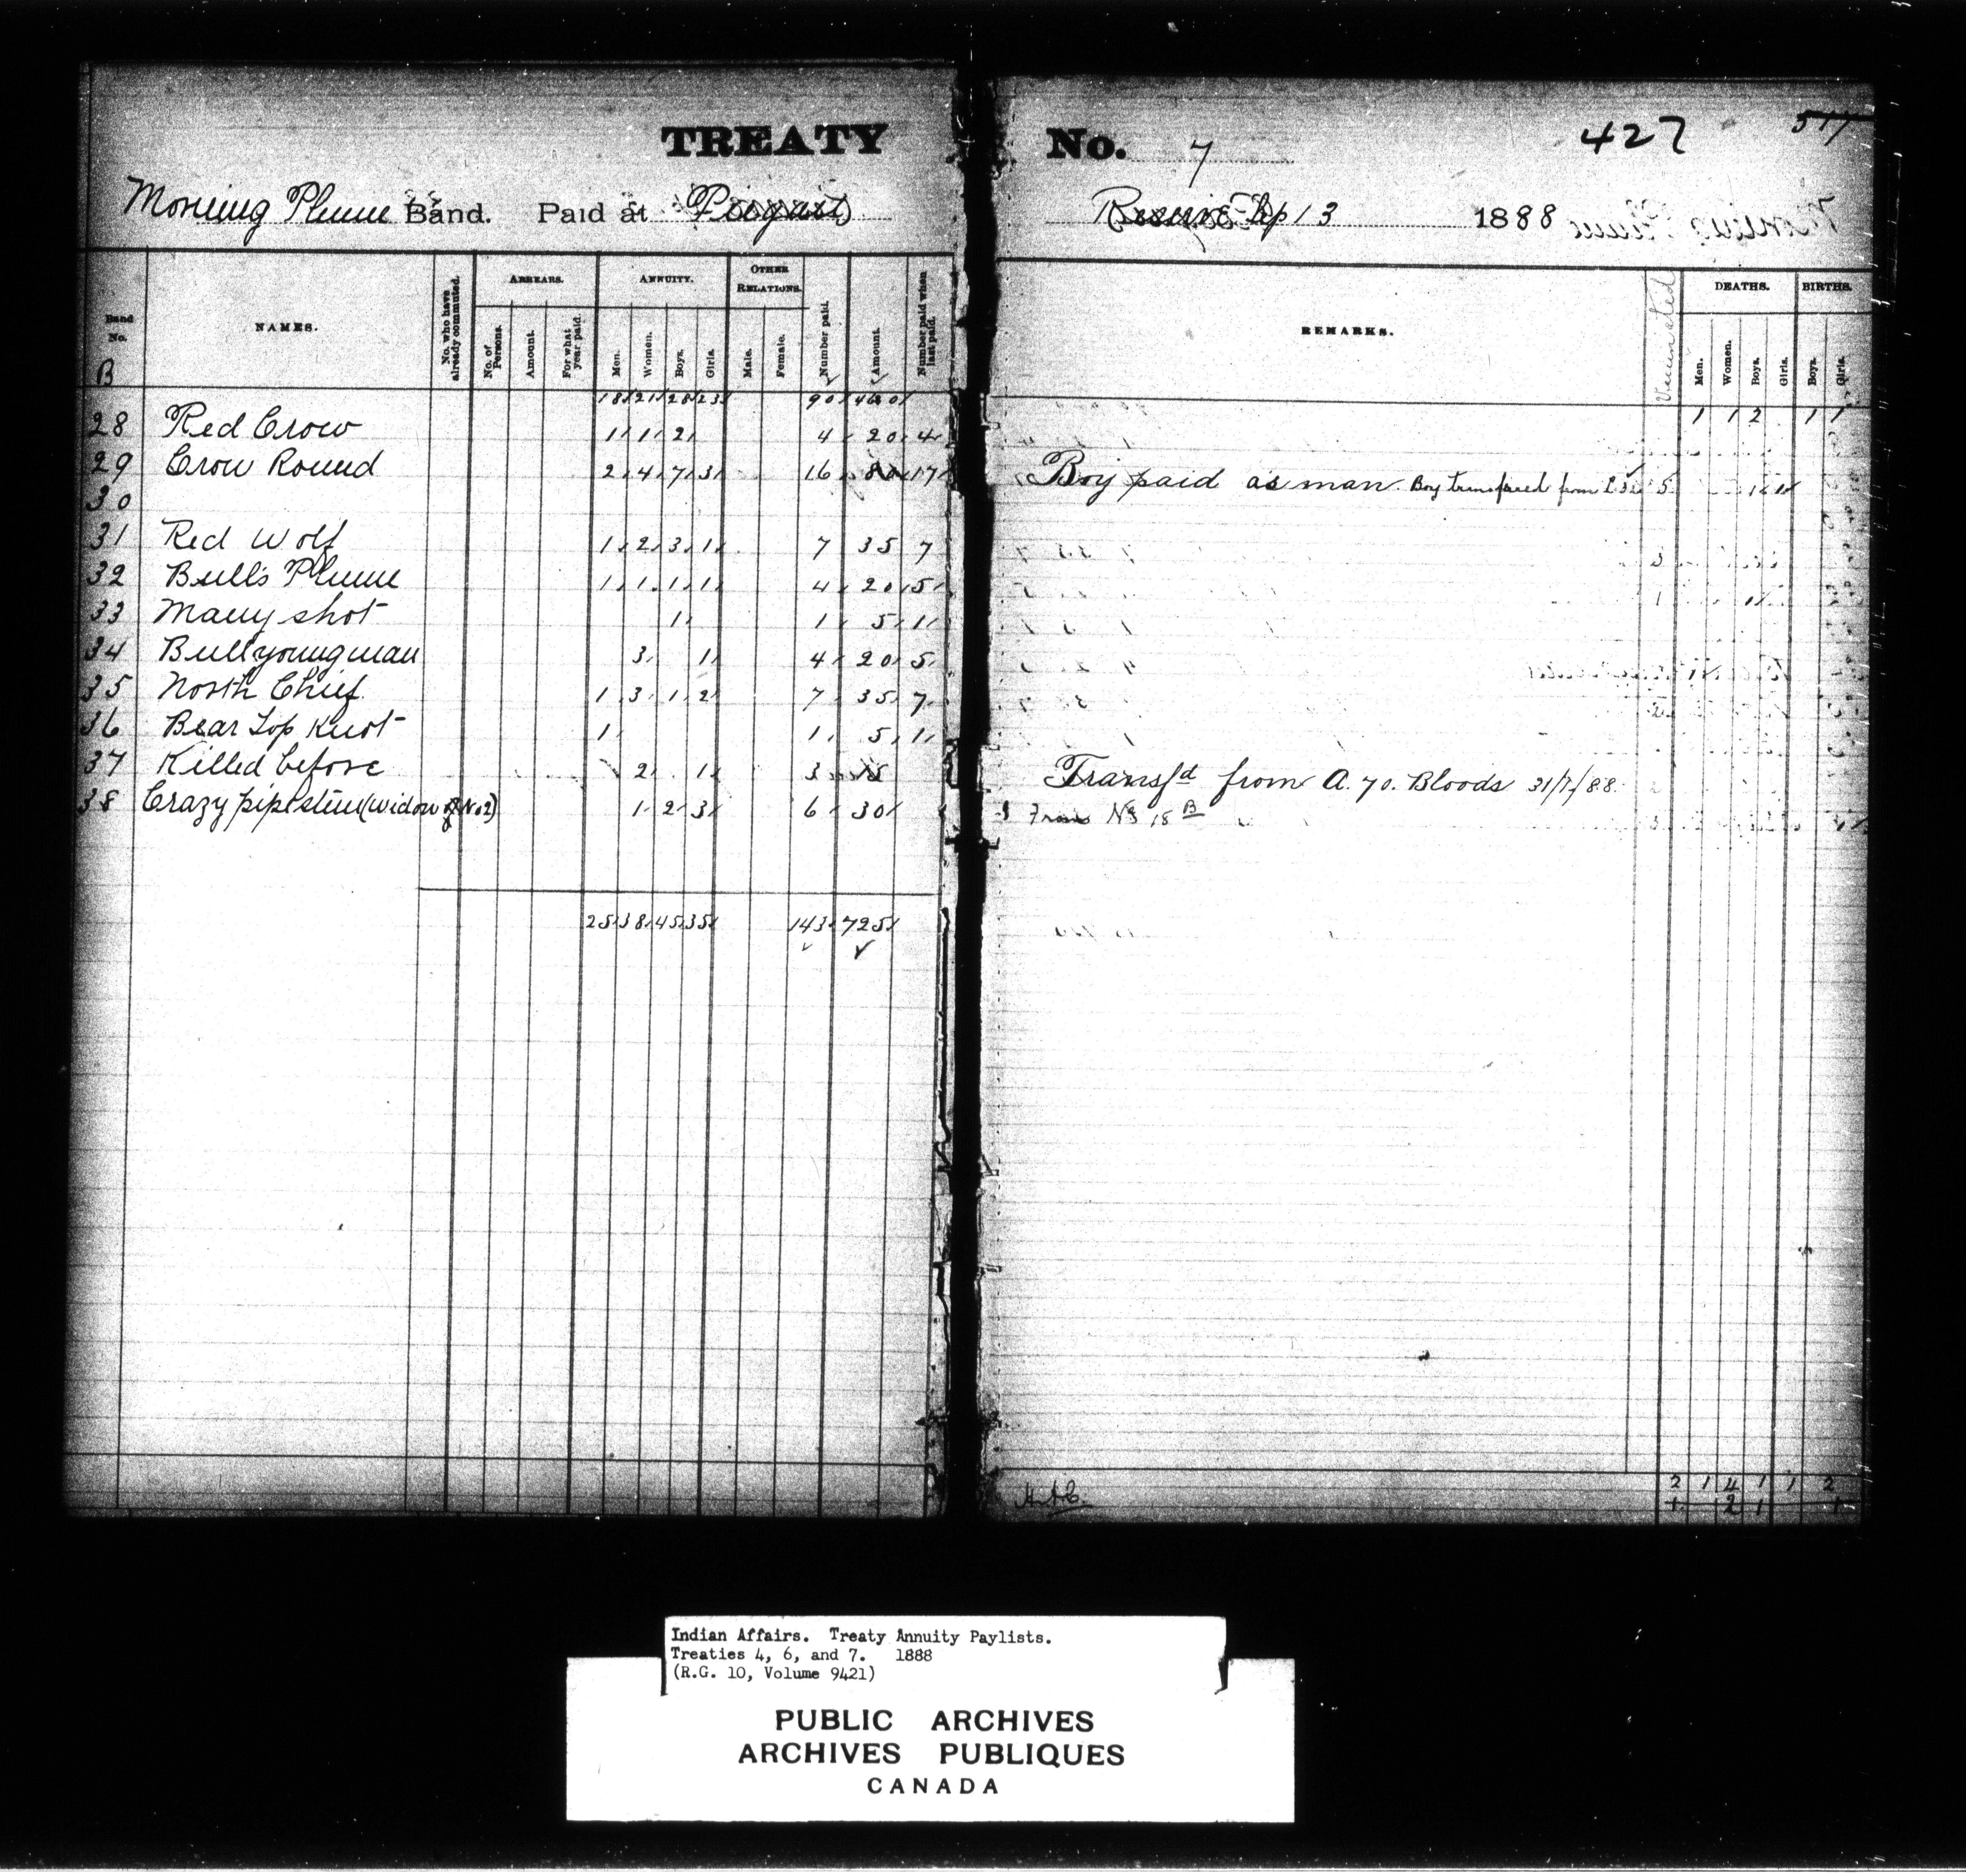 TREATY No. 7 427 517
Morning Plume Band. Paid at Piegan Reserve Sep 13 1888
Band No. NAMES. No. who have already commuted. ARREARS. ANNUITY. OTHER RELATIONS. Number paid. Amount. Number paid when last paid. REMARKS. Vaccinated DEATHS. BIRTHS.
No. of Persons. Amount. For what year paid. Men. Women. Boys. Girls. Male. Female. Men. Women. Boys. Girls. Boys. Girls.
B
18 21 28 23 90 460 1 1 2 1 1
28 Red Crow 1 1 2 4 20 4
29 Crow Round 2 4 7 3 16 80 17 Boy paid as man. Boy transferred from 5
30
31 Red Wolf 1 2 3 1 7 35 7
32 Bull's Plume 1 1 1 1 4 20 5
33 Many shot 1 1 5 1
34 Bull young man 3 1 4 20 5
35 North Chief 1 3 1 2 7 35 7
36 Bear Top Knot 1 1 5 1
37 Killed before 2 1 3 15 Transfd from A. 70. Bloods 31/7/88
38 Crazy pipestem (widow of No 2) 1 2 3 6 30 From No 18 B
25 38 45 35 143 725
2 1 4 1 1 2
1 2 1 1
Indian Affairs. Treaty Annuity Paylists.
Treaties 4, 6, and 7. 1888
(R.G. 10, Volume 9421)
PUBLIC ARCHIVES
ARCHIVES PUBLIQUES
CANADA